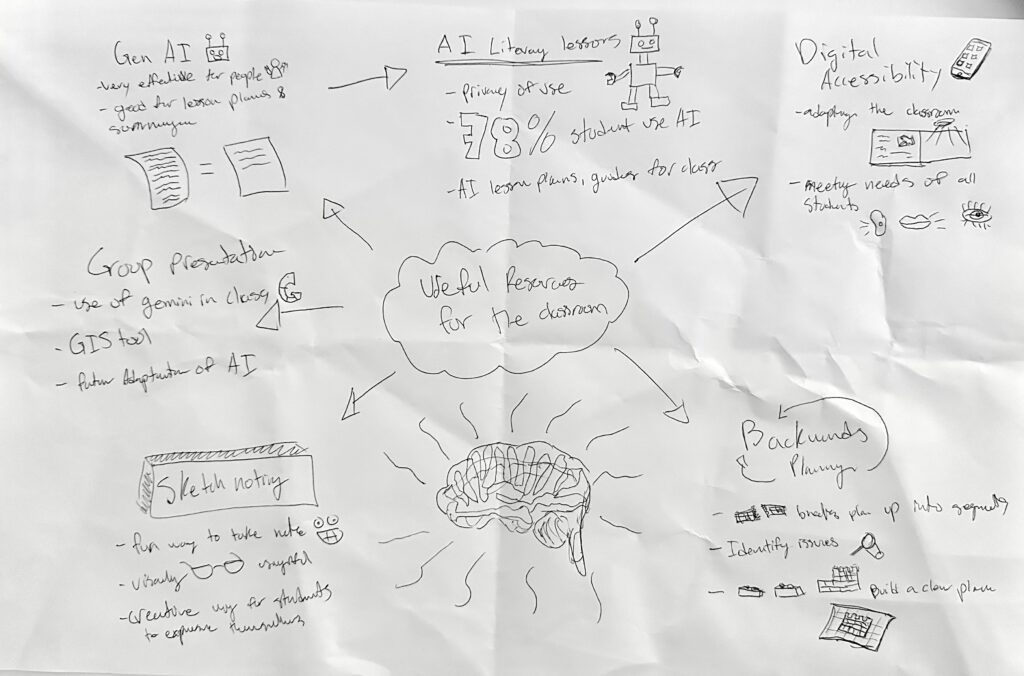 Gen AI
- very effective for people
- good for lesson plans &
AI Literacy lessons
- privacy of use
- 78% student use AI
- AI lesson plans, guides for class
Digital
Accessibility
- adapting the classroom
- meeting needs of all
students
Useful Resources
for the classroom
Group presentation
- use of gemini in class
G
- GIS tool
- future Adaptation of AI
Sketch noting
- fun way to take note
- visually
- creative way for students
to express themselves
Backwards
Planning
- breaks plan up into segments
- Identify issues
- Build a clear plan